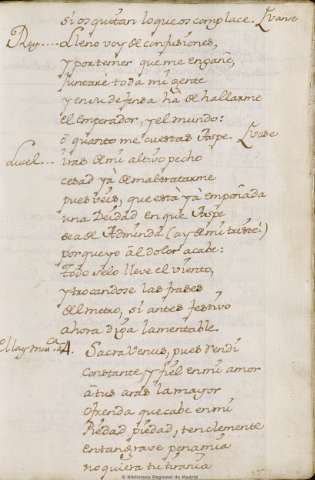 si os quitan lo que os complace. Vanse
Rey.... Lleno voy de confusiones,
y por temer que me engañe,
juntaré toda mi gente
y en su defensa ha de hallarme
el emperador, y el mundo:
ô quanto me cuestas Aspe. Vase
Lucil... iras de mi altivo pecho
cesad yà de maltratarme
pues veis, que està yà empeñada
una Deidad en que Aspe
sea de Adminda (ay de mi triste!)
porque yo à el dolor acabe:
todo se lo lleve el viento,
y trocandose las frases
del metro, si antes festivo
ahora diga lamentable.
4. Sacra Venus, pues rendi
constante, y fiel en mi amor
à tus aras la mayor
ofrenda que cabe en mi
Piedad piedad, ten clemente
en tan grave pena mia
no quiera tu tirania
© Biblioteca Regional de Madrid